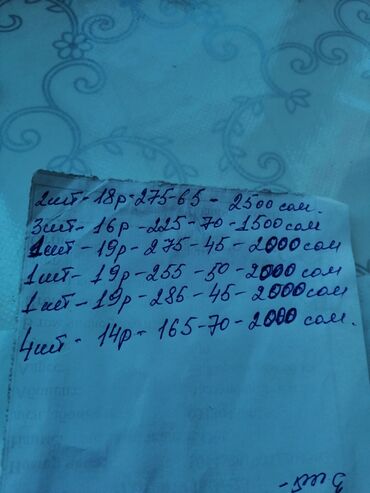 2шт - 18р - 275-65 - 2500 сом.
3шт - 16р - 225-70-1500 сом
1шт - 19р - 275-45-2000 сом
1шт - 19р - 255-50-2000 сом
1шт - 19р - 285-45-2000 сом
4шт - 14р - 165-70-2000 сом.